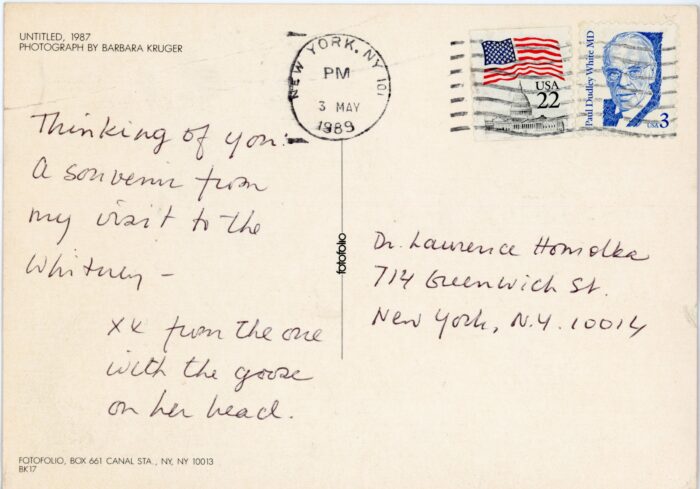 UNTITLED, 1987
PHOTOGRAPH BY BARBARA KRUGER
NEW YORK, NY 101
PM
3 MAY
1989
USA
22
Paul Dudley White MD
USA 3
Thinking of you:
A souvenir from
my visit to the
Whitney –
XX from the one
with the goose
on her head.
fotofolio
Dr. Lawrence Homolka
714 Greenwich St.
New York, N.Y. 10014
FOTOFOLIO, BOX 661 CANAL STA., NY, NY 10013
BK17